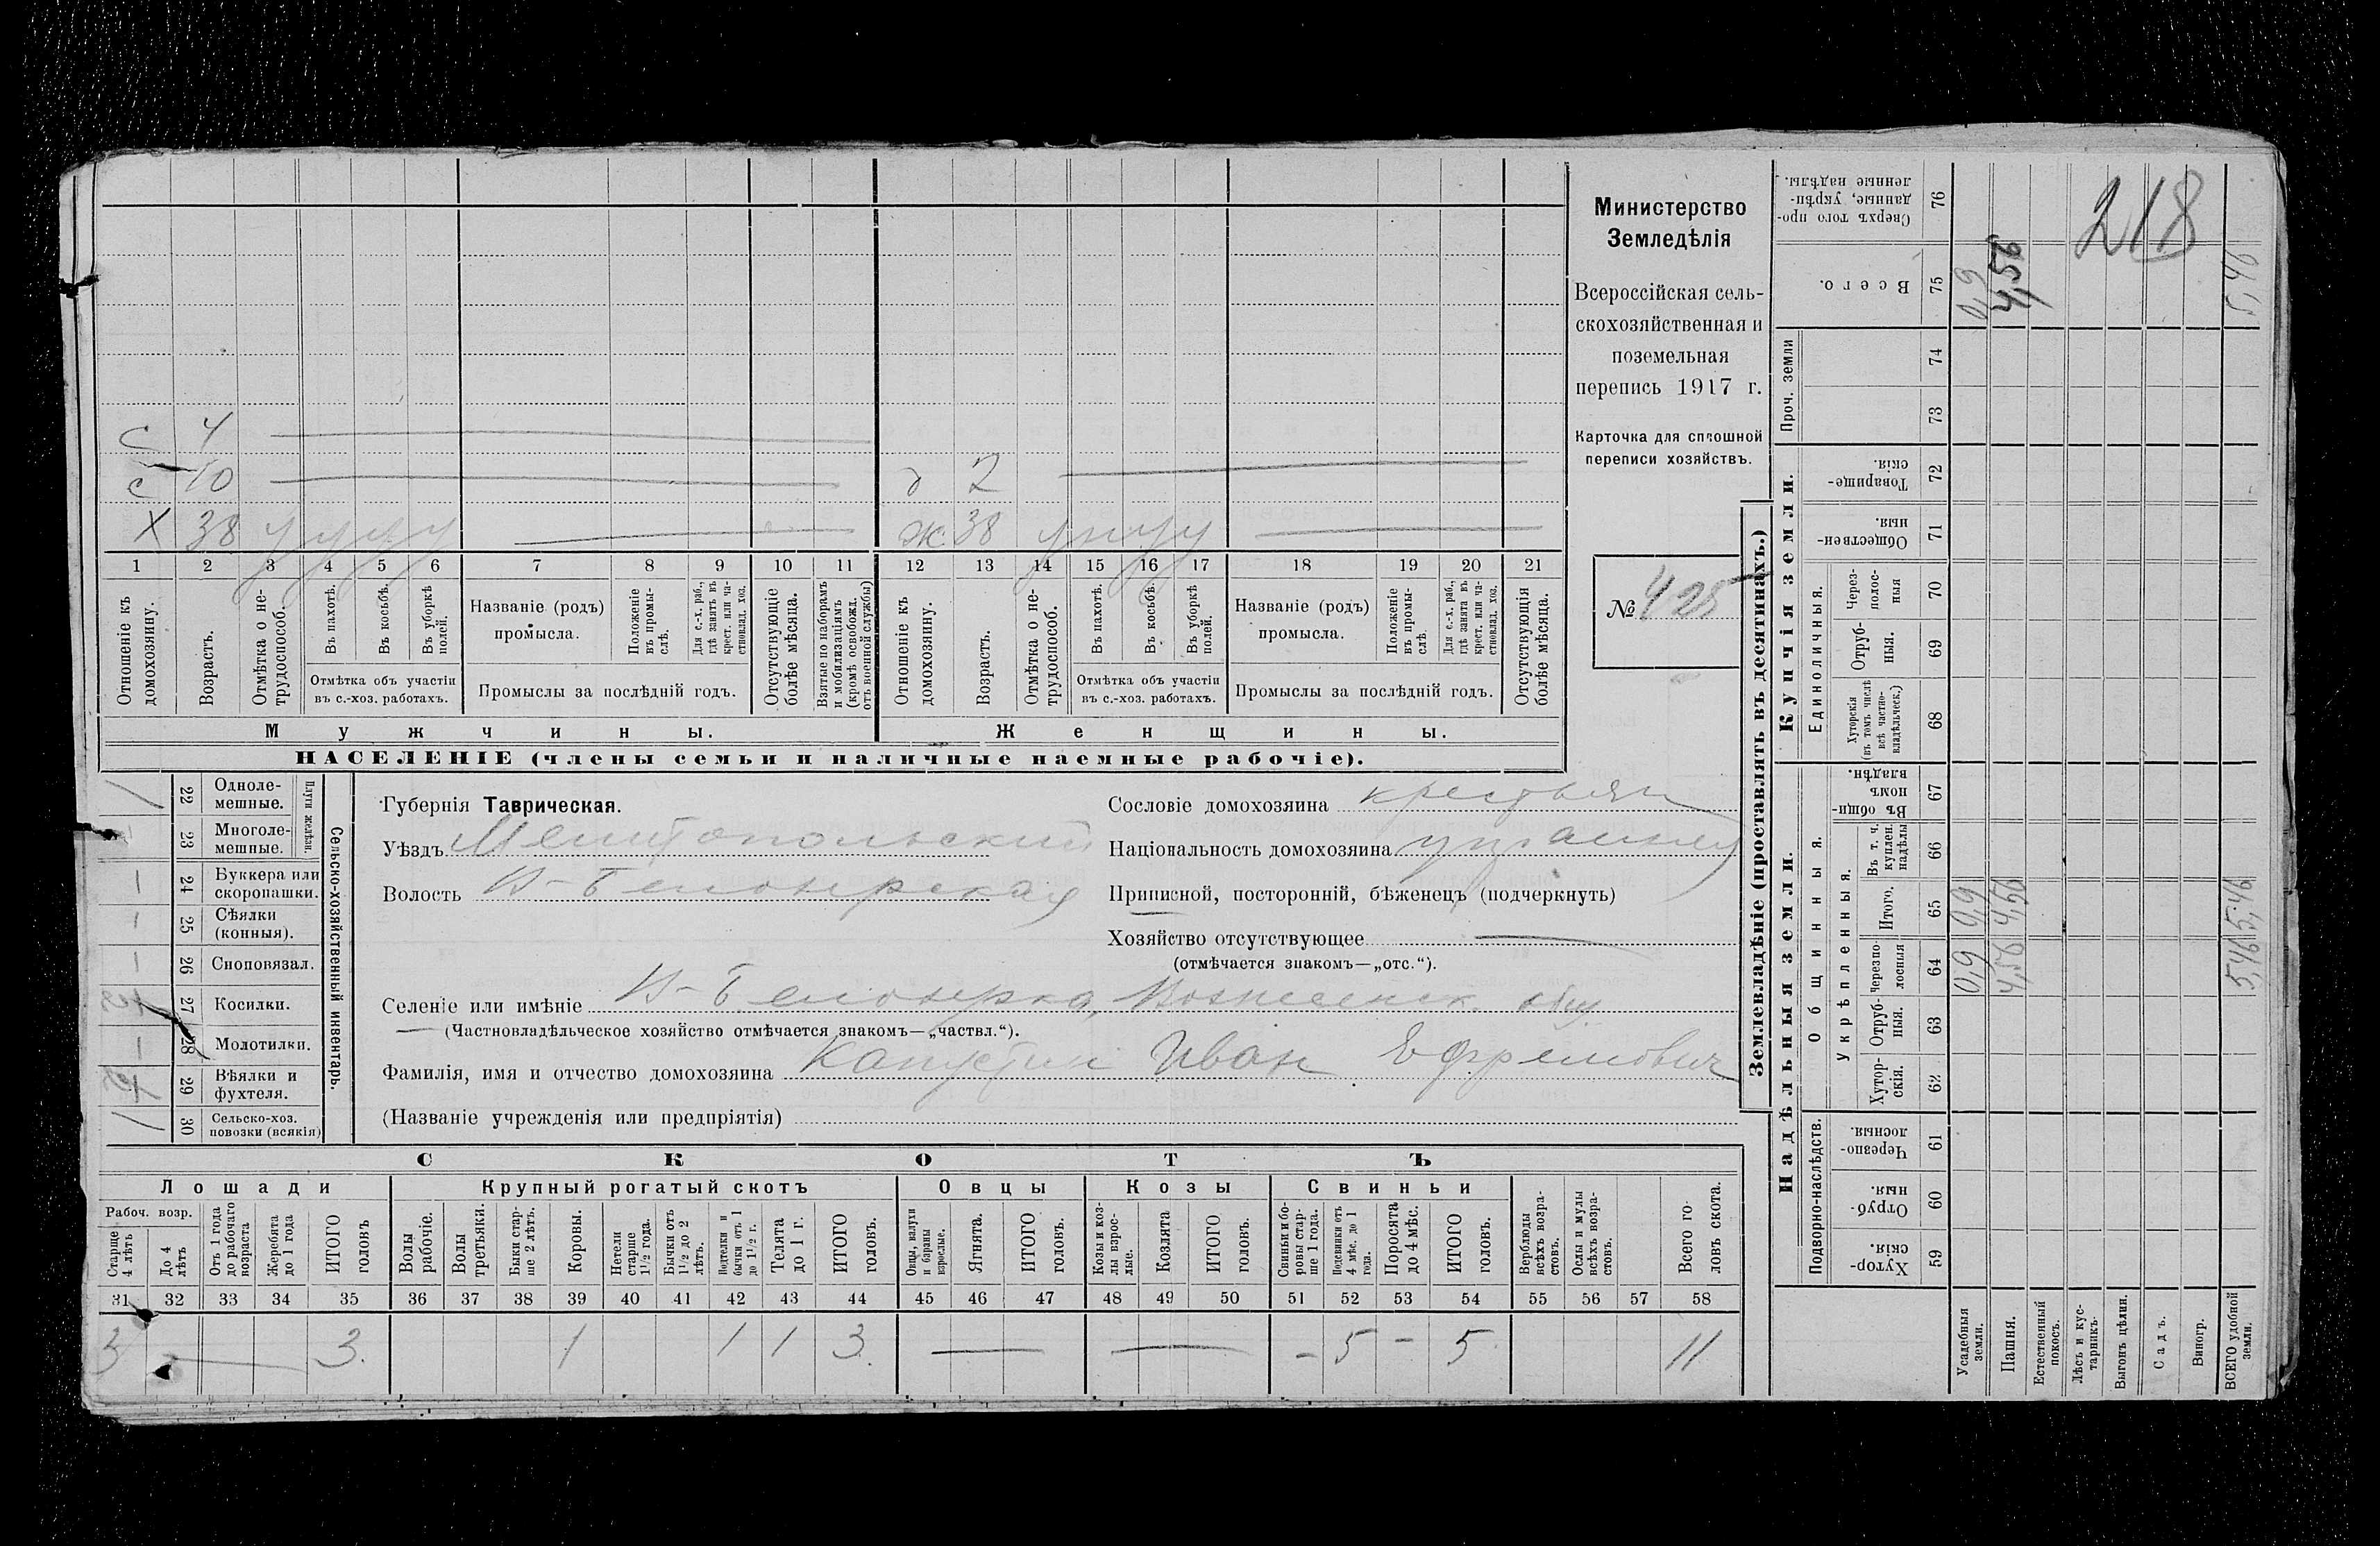 218
Министерство
Земледѣлія
Всероссійская сель-
скохозяйственная и
поземельная
перепись 1917 г.
Карточка для сплошной
переписи хозяйствъ.
№ 425
с 4
с 10
Х 38 у у у у
д 2
ж 38 у н у у
1 2 3 4 5 6 7 8 9 10 11 12 13 14 15 16 17 18 19 20 21
Отношеніе къ домохозяину.
Возрастъ.
Отмѣтка о не-трудоспособ.
Въ пахотѣ.
Въ косьбѣ.
Въ уборкѣ полей.
Отмѣтка объ участіи
въ с.-хоз. работахъ.
Названіе (родъ)
промысла.
Положеніе въ промы-слѣ.
Для с.-х. раб., гдѣ занятъ въ крест. или ча-стновлад. хоз.
Промыслы за послѣдній годъ.
Отсутствующіе болѣе мѣсяца.
Взятые по наборамъ и мобилизаціямъ (кромѣ освобожд. отъ военной службы)
Отношеніе къ домохозяину.
Возрастъ.
Отмѣтка о не-трудоспособ.
Въ пахотѣ.
Въ косьбѣ.
Въ уборкѣ полей.
Отмѣтка объ участіи
въ с.-хоз. работахъ.
Названіе (родъ)
промысла.
Положеніе въ промы-слѣ.
Для с.-х. раб., гдѣ занята въ крест. или ча-стновлад. хоз.
Промыслы за послѣдній годъ.
Отсутствующія болѣе мѣсяца.
Мужчины.
Женщины.
НАСЕЛЕНІЕ (члены семьи и наличные наемные рабочіе).
Сельско-хозяйственный инвентарь.
Плуги желѣзн.
22 Одноле-мешные.
23 Многоле-мешные.
24 Буккера или скоропашки.
25 Сѣялки (конныя).
26 Сноповязал.
27 Косилки.
28 Молотилки.
29 Вѣялки и фухтеля.
30 Сельско-хоз. повозки (всякія)
Губернія Таврическая.
Уѣздъ Мелитопольский
Волость В-Белозерская
Сословіе домохозяина крестьян
Національность домохозяина
Приписной, посторонній, бѣженецъ (подчеркнуть)
Хозяйство отсутствующее
(отмѣчается знакомъ—„отс.“).
Селеніе или имѣніе В-Белозерка, Вознесенск. общ.
(Частновладѣльческое хозяйство отмѣчается знакомъ—„частвл.“).
Фамилія, имя и отчество домохозяина Капустин Иван Ефремович
(Названіе учрежденія или предпріятія)
СКОТЪ
Лошади
Крупный рогатый скотъ
Овцы
Козы
Свиньи
Рабоч. возр.
Старше 4 лѣтъ
До 4 лѣтъ
Отъ 1 года до рабочаго возраста
Жеребята до 1 года
ИТОГО головъ
Волы рабочіе.
Волы третьяки.
Быки стар-ше 2 лѣтъ.
Коровы.
Нетели старше 1½ года.
Бычки отъ 1½ до 2 лѣтъ.
Подтелки и бычки отъ 1 до 1½ г.
Телята до 1 г.
ИТОГО головъ.
Овцы, валухи и бараны взрослые.
Ягнята.
ИТОГО головъ.
Козы и коз-лы взрос-лые.
Козлята
ИТОГО головъ.
Свиньи и бо-ровы стар-ше 1 года.
Подсвинки отъ 4 мѣс. до 1 года.
Поросята до 4 мѣс.
ИТОГО головъ.
Верблюды всѣхъ возра-стовъ.
Ослы и мулы всѣхъ возра-стовъ.
Всего го-ловъ скота.
31 32 33 34 35 36 37 38 39 40 41 42 43 44 45 46 47 48 49 50 51 52 53 54 55 56 57 58
3 3. 1 1 1 3. 5 5 11
Землевладѣніе (проставлять въ десятинахъ.)
Надѣльныя земли.
Купчія земли.
Проч. земли
Подворно-наслѣдств.
Общинныя.
Укрѣпленныя.
Единоличныя.
Хутор-скія. 59
Отруб-ныя. 60
Черезпо-лосныя. 61
Хутор-скія. 62
Отруб-ныя. 63
Черезпо-лосныя 64
Итого. 65
Въ т. ч. куплен. надѣлы 66
Въ общи-номъ владѣн. 67
Хуторскія (въ томъ числѣ всѣ частно-владѣльческ.) 68
Отруб-ныя. 69
Через-полос-ныя 70
Обществен-ныя. 71
Товарище-скія. 72
73
74
Всего. 75
Сверхъ того про-данные, укрѣп-ленные надѣлы. 76
Усадебныя земли. 0,9 0,9 0,9
Пашня. 4,56 4,56 4,56
Естественный покосъ.
Лѣсъ и кус-тарникъ.
Выгонъ цѣлин.
Садъ.
Виногр.
ВСЕГО удобной земли. 5,46 5,46 5,46